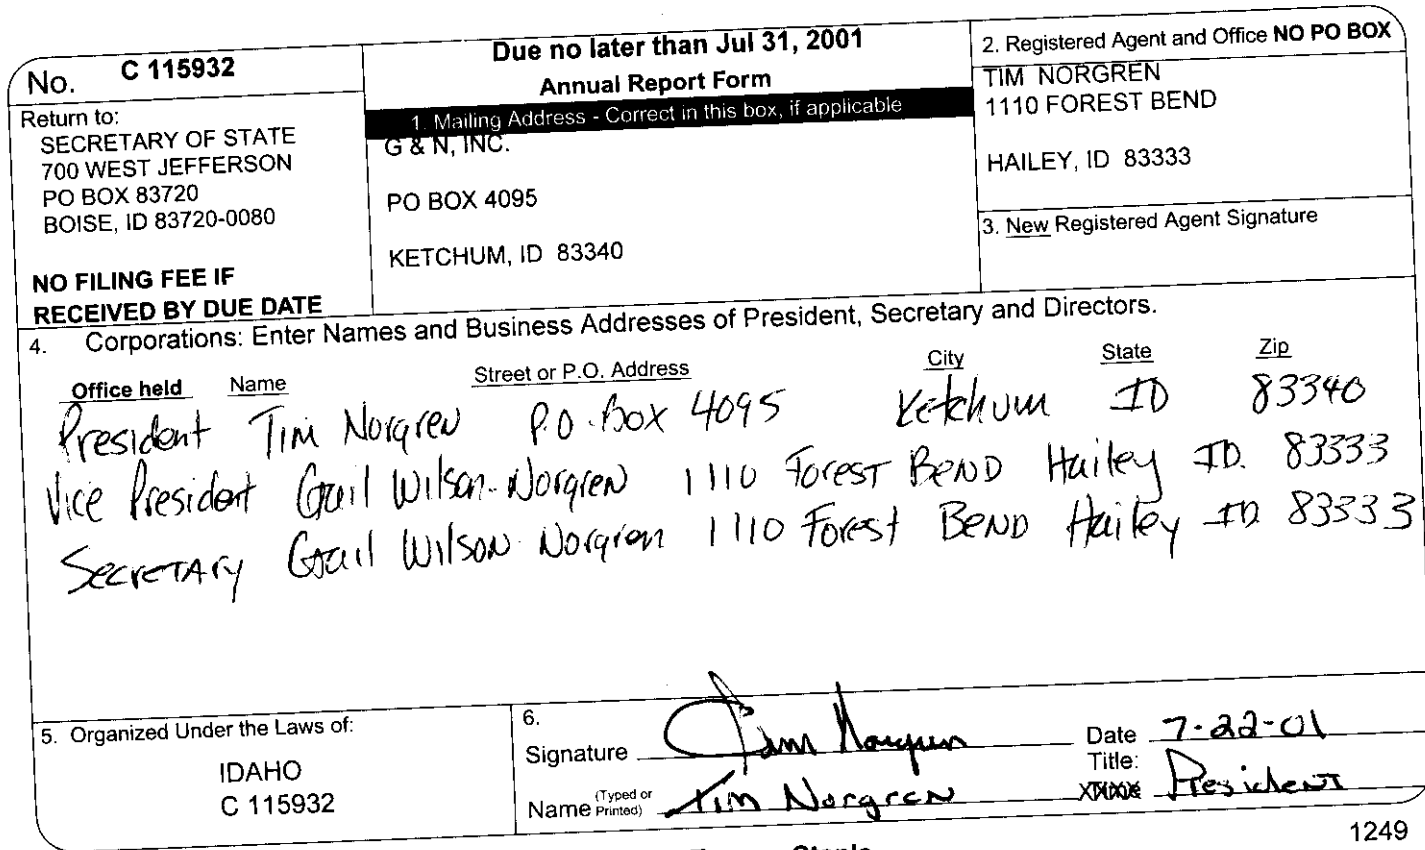 No. C 115932
Return to:
SECRETARY OF STATE
700 WEST JEFFERSON
PO BOX 83720
BOISE, ID 83720-0080
NO FILING FEE IF
RECEIVED BY DUE DATE
Due no later than Jul 31, 2001
Annual Report Form
1. Mailing Address - Correct in this box, if applicable
G & N, INC.
PO BOX 4095
KETCHUM, ID 83340
2. Registered Agent and Office NO PO BOX
TIM NORGREN
1110 FOREST BEND
HAILEY, ID 83333
3. New Registered Agent Signature
4. Corporations: Enter Names and Business Addresses of President, Secretary and Directors.
Office held Name Street or P.O. Address City State Zip
President Tim Norgren P.O. Box 4095 Ketchum ID 83340
Vice President Gail Wilson-Norgren 1110 Forest Bend Hailey ID. 83333
Secretary Gail Wilson-Norgren 1110 Forest Bend Hailey ID 83333
5. Organized Under the Laws of:
IDAHO
C 115932
6.
Signature Tim Norgren Date 7-22-01
Name (Typed or Printed) Tim Norgren Title: President
1249